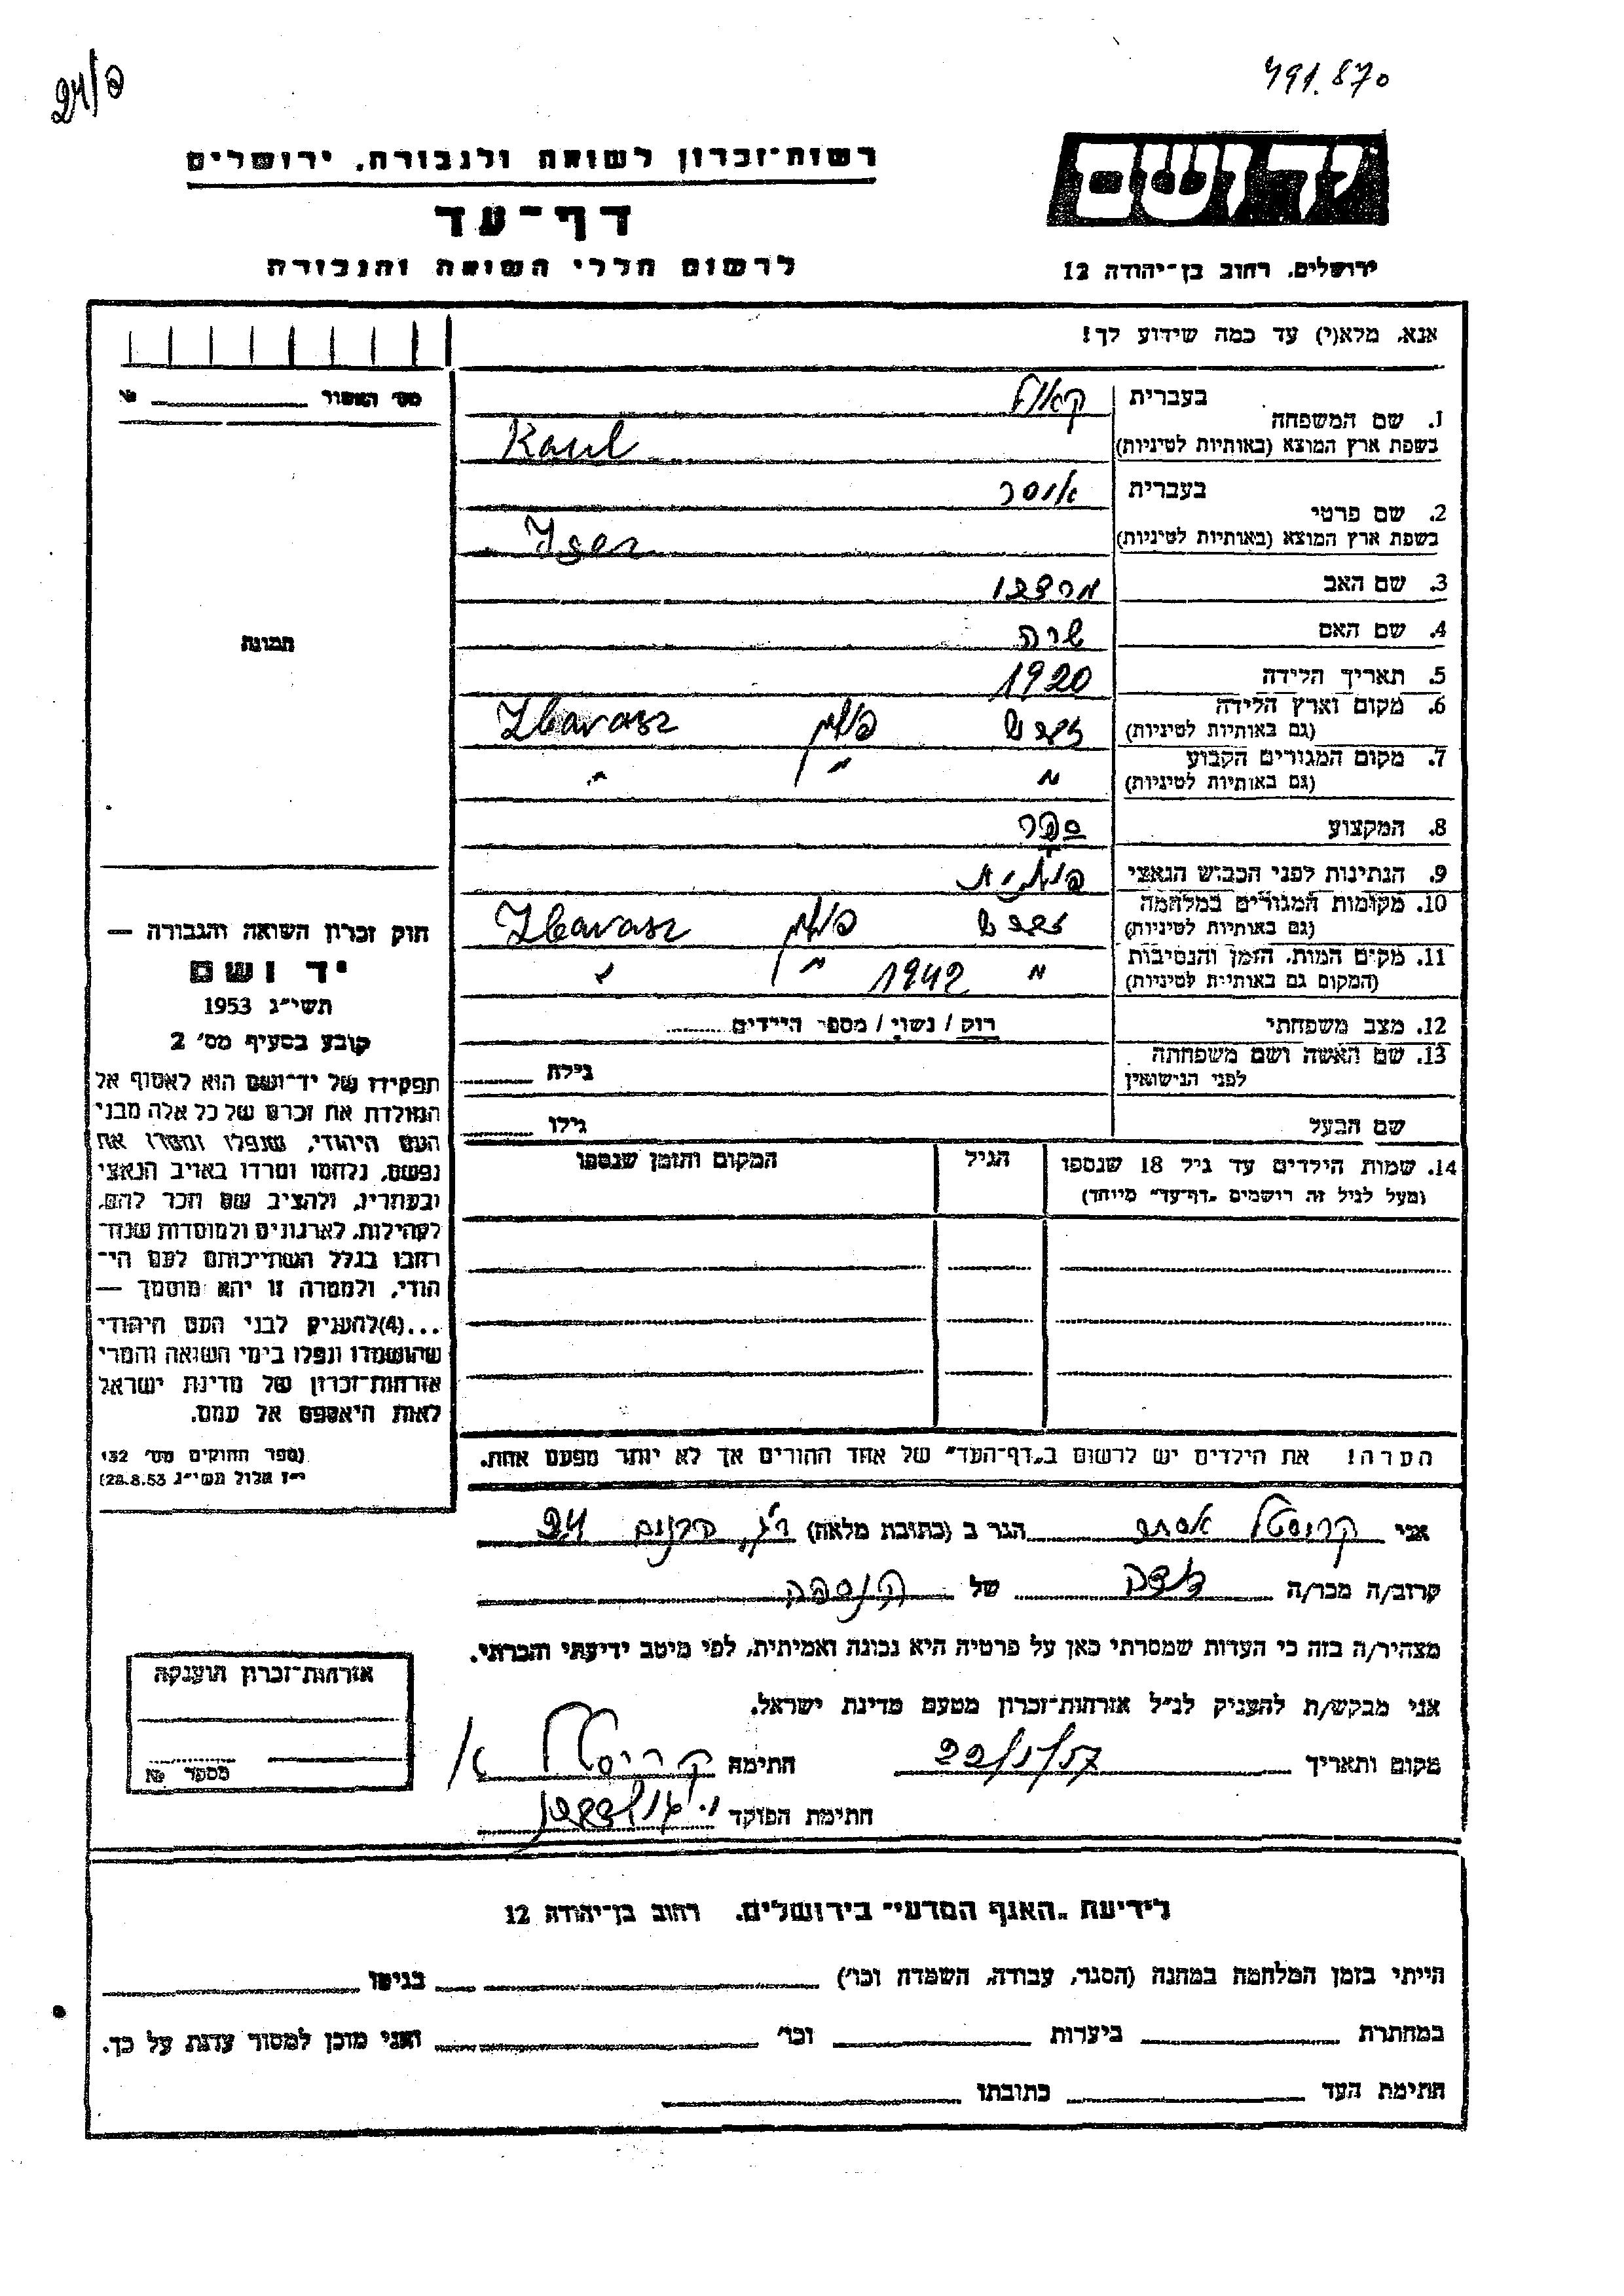 24/פ
491.870
רשות־זכרון לשואה ולגבורה, ירושלים
יד ושם
דף־עד
לרשום חללי השואה והגבורה
ירושלים, רחוב בן־יהודה 12
אנא, מלא(י) עד כמה שידוע לך!
מס׳ האשור №
1. שם המשפחה בעברית קאול
בשפת ארץ המוצא (באותיות לטיניות) Kaul
2. שם פרטי בעברית איסר
בשפת ארץ המוצא (באותיות לטיניות) Iser
3. שם האב מרדכי
4. שם האם שרה
5. תאריך הלידה 1920
6. מקום וארץ הלידה פולין Zbarasz
(גם באותיות לטיניות)
7. מקום המגורים הקבוע " " "
(גם באותיות לטיניות)
8. המקצוע ספר
9. הנתינות לפני הכבוש הנאצי פולנית
10. מקומות המגורים במלחמה פולין Zbarasz
(גם באותיות לטיניות)
11. מקום המות, הזמן והנסיבות " 1942 " "
(המקום גם באותיות לטיניות)
12. מצב משפחתי רוק / נשוי / מספר הילדים
13. שם האשה ושם משפחתה גילה
לפני הנישואין
שם הבעל גילו
14. שמות הילדים עד גיל 18 שנספו הגיל המקום והזמן שנספו
(מעל לגיל זה רושמים „דף־עד״ מיוחד)
הערה! את הילדים יש לרשום ב„דף־העד״ של אחד ההורים אך לא יותר מפעם אחת.
תמונה
חוק זכרון השואה והגבורה —
יד ושם
תשי״ג 1953
קובע בסעיף מס׳ 2
תפקידו של יד־ושם הוא לאסוף אל
המולדת את זכרם של כל אלה מבני
העם היהודי, שנפלו ומסרו את
נפשם, נלחמו ומרדו באויב הנאצי
ובעוזריו, ולהציב שם וזכר להם,
לקהילות, לארגונים ולמוסדות שנח־
רבו בגלל השתייכותם לעם הי־
הודי, ולמטרה זו יהא מוסמך —
...(4)להעניק לבני העם היהודי
שהושמדו ונפלו בימי השואה והמרי
אזרחות־זכרון של מדינת ישראל
לאות היאספם אל עמם.
(ספר החוקים מס׳ 132
י״ז אלול תשי״ג 28.8.53)
אני קריסטל אסתר הגר ב (כתובת מלאה) 24
קרוב/ה מכר/ה דודה של הנספה
מצהיר/ה בזה כי העדות שמסרתי כאן על פרטיה היא נכונה ואמיתית, לפי מיטב ידיעתי והכרתי.
אני מבקש/ת להעניק לנ״ל אזרחות־זכרון מטעם מדינת ישראל.
מקום ותאריך 22/5/57 חתימה קריסטל א/
חתימת הפוקד
אזרחות־זכרון הוענקה
מספר №
לידיעת „האגף המדעי״ בירושלים, רחוב בן־יהודה 12
הייתי בזמן המלחמה במחנה (הסגר, עבודה, השמדה וכו׳) בגיטו
במחתרת ביערות וכו׳ ואני מוכן למסור עדות על כך.
חתימת העד כתובתו